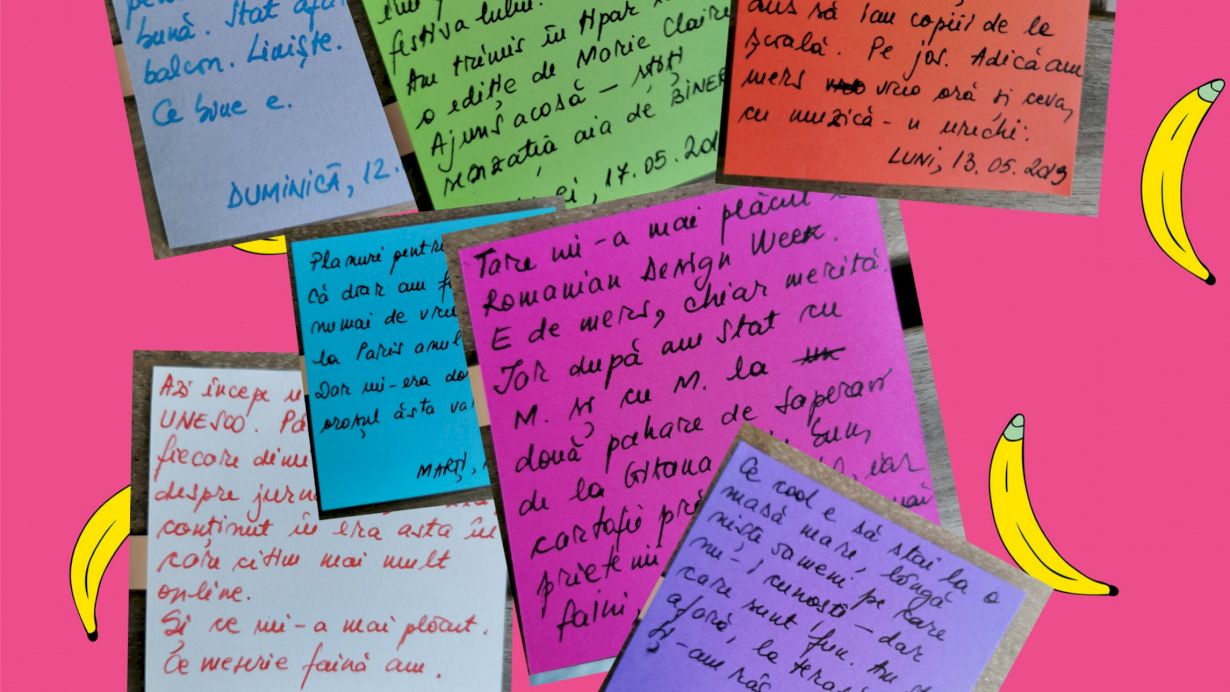 bună. Stat afa
balcon. Liniște.
Ce bine e.
DUMINICĂ, 12.
festivalului.
Am trimis în tipar
o ediție de Marie Claire
Ajuns acasă – știți
senzația aia de BINE
17.05.201
dus să iau copiii de la
școală. Pe jos. Adică am
mers vreo oră și ceva,
cu muzică-n urechi.
LUNI, 13.05.2019
Planuri pentru
Că doar am f
numai de vre
la Paris anul
Dar mi-era do
orașul ăsta va
MARȚI,
Tare mi-a mai plăcut
Romanian Design Week.
E de mers, chiar merită.
Iar după am stat cu
M. și cu M. la
două pahare de Saperavi
de la Gitana bun,
cartofi pră iar
prieteni mai
faini,
Azi încept
UNESCO. Pâ
fiecare dimi
despre jurn
conținut în era asta în
care citim mai mult
online.
Și ce mi-a mai plăcut.
Ce meserie faină am.
Ce cool e să stai la o
masă mare, lângă
niște oameni pe care
nu-i cunoști – dar
care sunt fun. Am
afară, la teras
Și-am râs